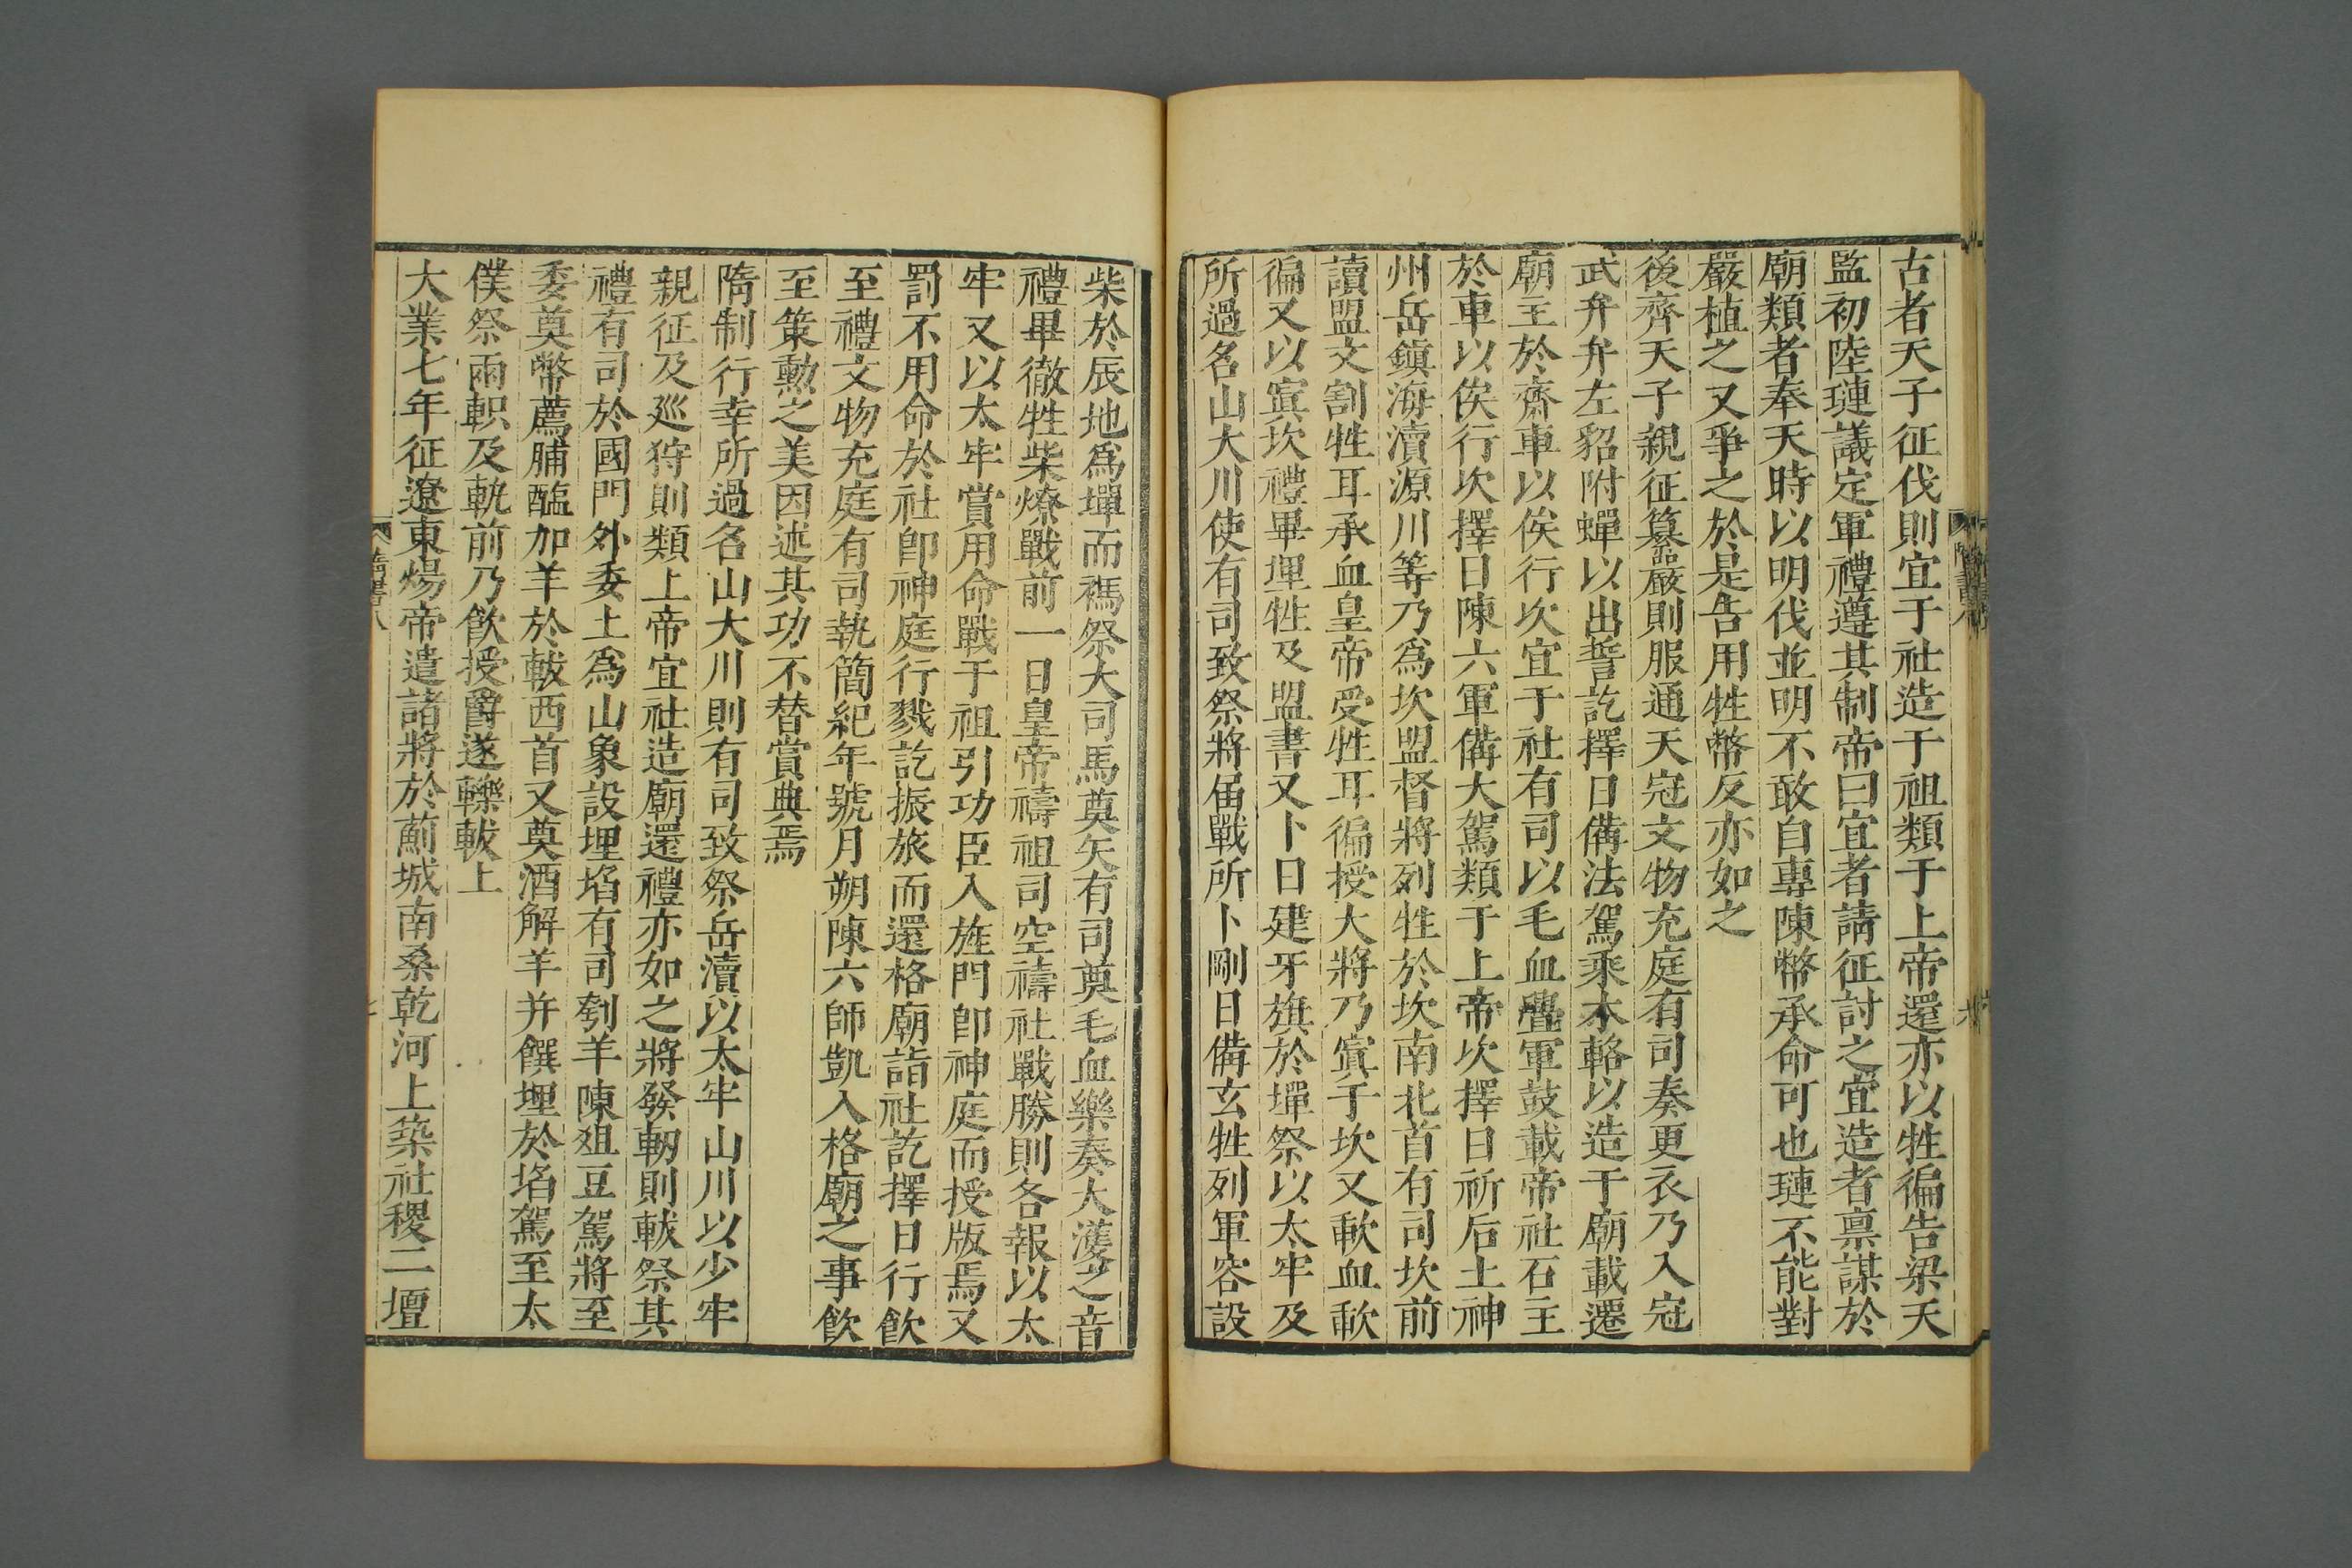 古者天子征伐則宜于社造于祖類于上帝還亦以牲徧告梁天
監初陸璉議定軍禮遵其制帝曰宜者請征討之宜造者禀謀於
廟類者奉天時以明伐並明不敢自專陳幣承命可也璉不能對
嚴植之又爭之於是告用牲幣反亦如之
後齊天子親征纂嚴則服通天冠文物充庭有司奏更衣乃入冠
武弁弁左貂附蟬以出誓訖擇日備法駕乘木輅以造于廟載遷
廟主於齋車以俟行次宜于社有司以毛血釁軍鼓載帝社石主
於車以俟行次擇日陳六軍備大駕類于上帝次擇日祈后土神
州岳鎮海瀆源川等乃爲坎盟督將列牲於坎南北首有司坎前
讀盟文割牲耳承血皇帝受牲耳徧授大將乃寘于坎又歃血歃
徧又以寘坎禮畢埋牲及盟書又卜日建牙旗於墠祭以太牢及
所過名山大川使有司致祭將届戰所卜剛日備玄牲列軍容設
柴於辰地爲墠而禡祭大司馬奠矢有司奠毛血樂奏大濩之音
禮畢徹牲柴燎戰前一日皇帝禱祖司空禱社戰勝則各報以太
牢又以太牢賞用命戰于祖引功臣入旌門卽神庭而授版焉又
罰不用命於社卽神庭行戮訖振旅而還格廟詣社訖擇日行飲
至禮文物充庭有司執簡紀年號月朔陳六師凱入格廟之事飲
至策勳之美因述其功不替賞典焉
隋制行幸所過名山大川則有司致祭岳瀆以太牢山川以少牢
親征及廵狩則類上帝宜社造廟還禮亦如之將發軔則軷祭其
禮有司於國門外委土爲山象設埋埳有司刳羊陳俎豆駕將至
委奠幣薦脯醢加羊於軷西首又奠酒解羊并饌埋於埳駕至太
僕祭兩軹及軌前乃飲授爵遂轢軷上
大業七年征遼東煬帝遣諸將於薊城南桑乾河上築社稷二壇
隋書八